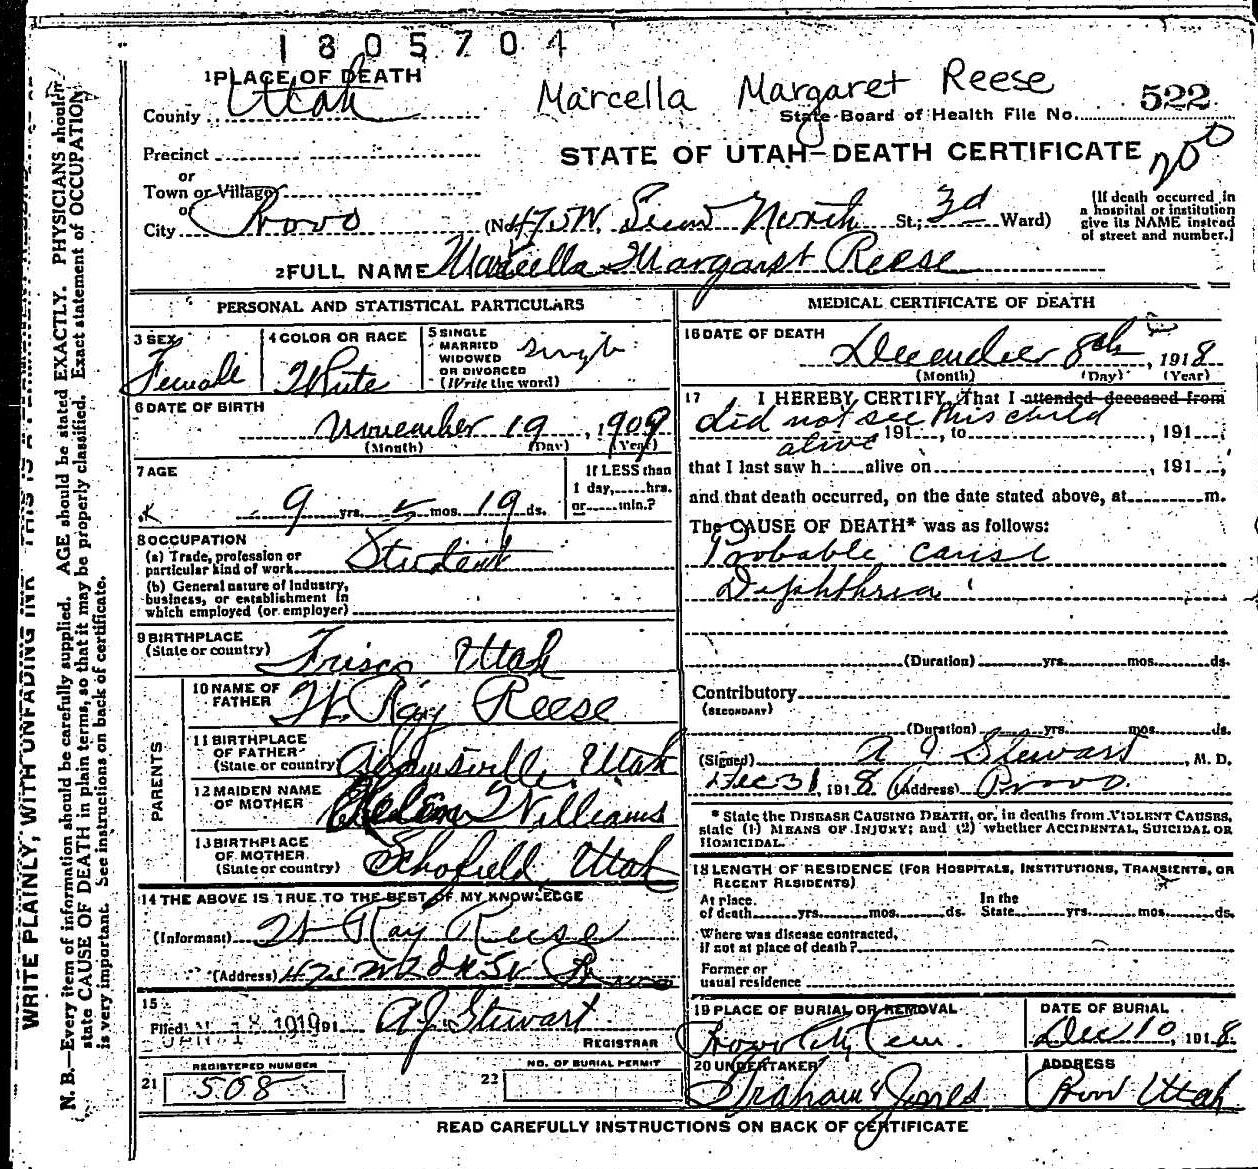 1805704
1 PLACE OF DEATH
Marcella Margaret Reese
County Utah
State Board of Health File No. 522
Precinct
or
STATE OF UTAH—DEATH CERTIFICATE
200
Town or Village
or
City Provo (No. 475 W. Second North St.; 3d Ward)
[If death occurred in a hospital or institution give its NAME instead of street and number.]
2 FULL NAME Marcella Margaret Reese
PERSONAL AND STATISTICAL PARTICULARS
3 SEX Female
4 COLOR OR RACE White
5 SINGLE MARRIED WIDOWED OR DIVORCED (Write the word) Single
6 DATE OF BIRTH
November 19, 1909
(Month) (Day) (Year)
7 AGE
9 yrs. mos. 19 ds.
If LESS than 1 day, hrs. or min.?
8 OCCUPATION
(a) Trade, profession or particular kind of work Student
(b) General nature of Industry, business, or establishment in which employed (or employer)
9 BIRTHPLACE (State or country) Frisco Utah
PARENTS
10 NAME OF FATHER W. Ray Reese
11 BIRTHPLACE OF FATHER (State or country) Adamsville, Utah
12 MAIDEN NAME OF MOTHER Williams
13 BIRTHPLACE OF MOTHER (State or country) Schofield, Utah
14 THE ABOVE IS TRUE TO THE BEST OF MY KNOWLEDGE
(Informant) W Ray Reese
(Address) 475 W 2d N St Provo
15
Filed JAN 18 1919 191 A J Stewart
REGISTRAR
21 REGISTERED NUMBER 508
22 NO. OF BURIAL PERMIT
MEDICAL CERTIFICATE OF DEATH
16 DATE OF DEATH
December 8th, 1918
(Month) (Day) (Year)
17 I HEREBY CERTIFY, That I attended deceased from
did not see this child
alive 191, to, 191,
that I last saw h alive on, 191,
and that death occurred, on the date stated above, at m.
The CAUSE OF DEATH* was as follows:
Probable cause
Diphthria
(Duration) yrs. mos. ds.
Contributory
(SECONDARY)
(Duration) yrs. mos. ds.
(Signed) A J Stewart, M. D.
Dec 31, 1918 (Address) Provo.
* State the DISEASE CAUSING DEATH, or, in deaths from VIOLENT CAUSES,
state (1) MEANS OF INJURY; and (2) whether ACCIDENTAL, SUICIDAL OR
HOMICIDAL.
18 LENGTH OF RESIDENCE (FOR HOSPITALS, INSTITUTIONS, TRANSIENTS, OR
RECENT RESIDENTS)
At place of death yrs. mos. ds. In the State yrs. mos. ds.
Where was disease contracted,
if not at place of death?
Former or
usual residence
19 PLACE OF BURIAL OR REMOVAL
Provo City Cem.
DATE OF BURIAL
Dec 10, 1918
20 UNDERTAKER
Graham & Jones
ADDRESS
Provo Utah
READ CAREFULLY INSTRUCTIONS ON BACK OF CERTIFICATE
WRITE PLAINLY, WITH UNFADING INK THIS IS A PERMANENT RECORD
N. B.—Every item of information should be carefully supplied. AGE should be stated EXACTLY. PHYSICIANS should
state CAUSE OF DEATH in plain terms, so that it may be properly classified. Exact statement of OCCUPATION
is very important. See instructions on back of certificate.